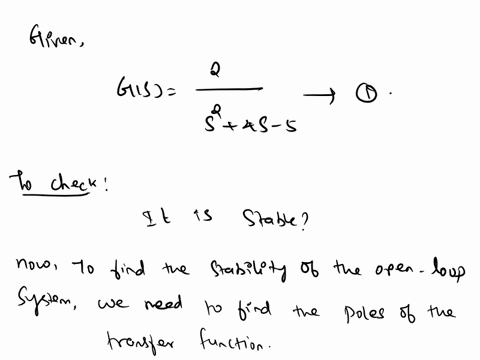 Given,
2
G(S) = ⟶ ①.
S² + 4S - 5
To check:
It is stable?
now, To find the stability of the open-loop
System, we need to find the poles of the
transfer function.